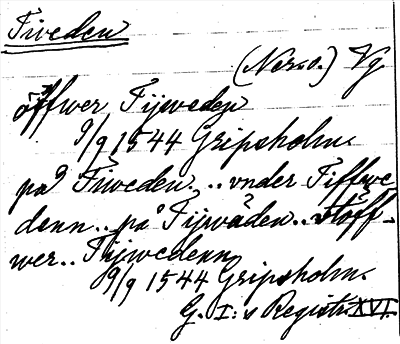 Tiveden
(Nerso.) Vg
öffwer Tijweden
9/9 1544 Gripsholm.
på Tiweden... vnder Tiffwe-
denn.. på Tijwåden.. vtöff-
wer.. Tijwedenn
9/9 1544 Gripsholm.
G. I:s Registr. XVI.